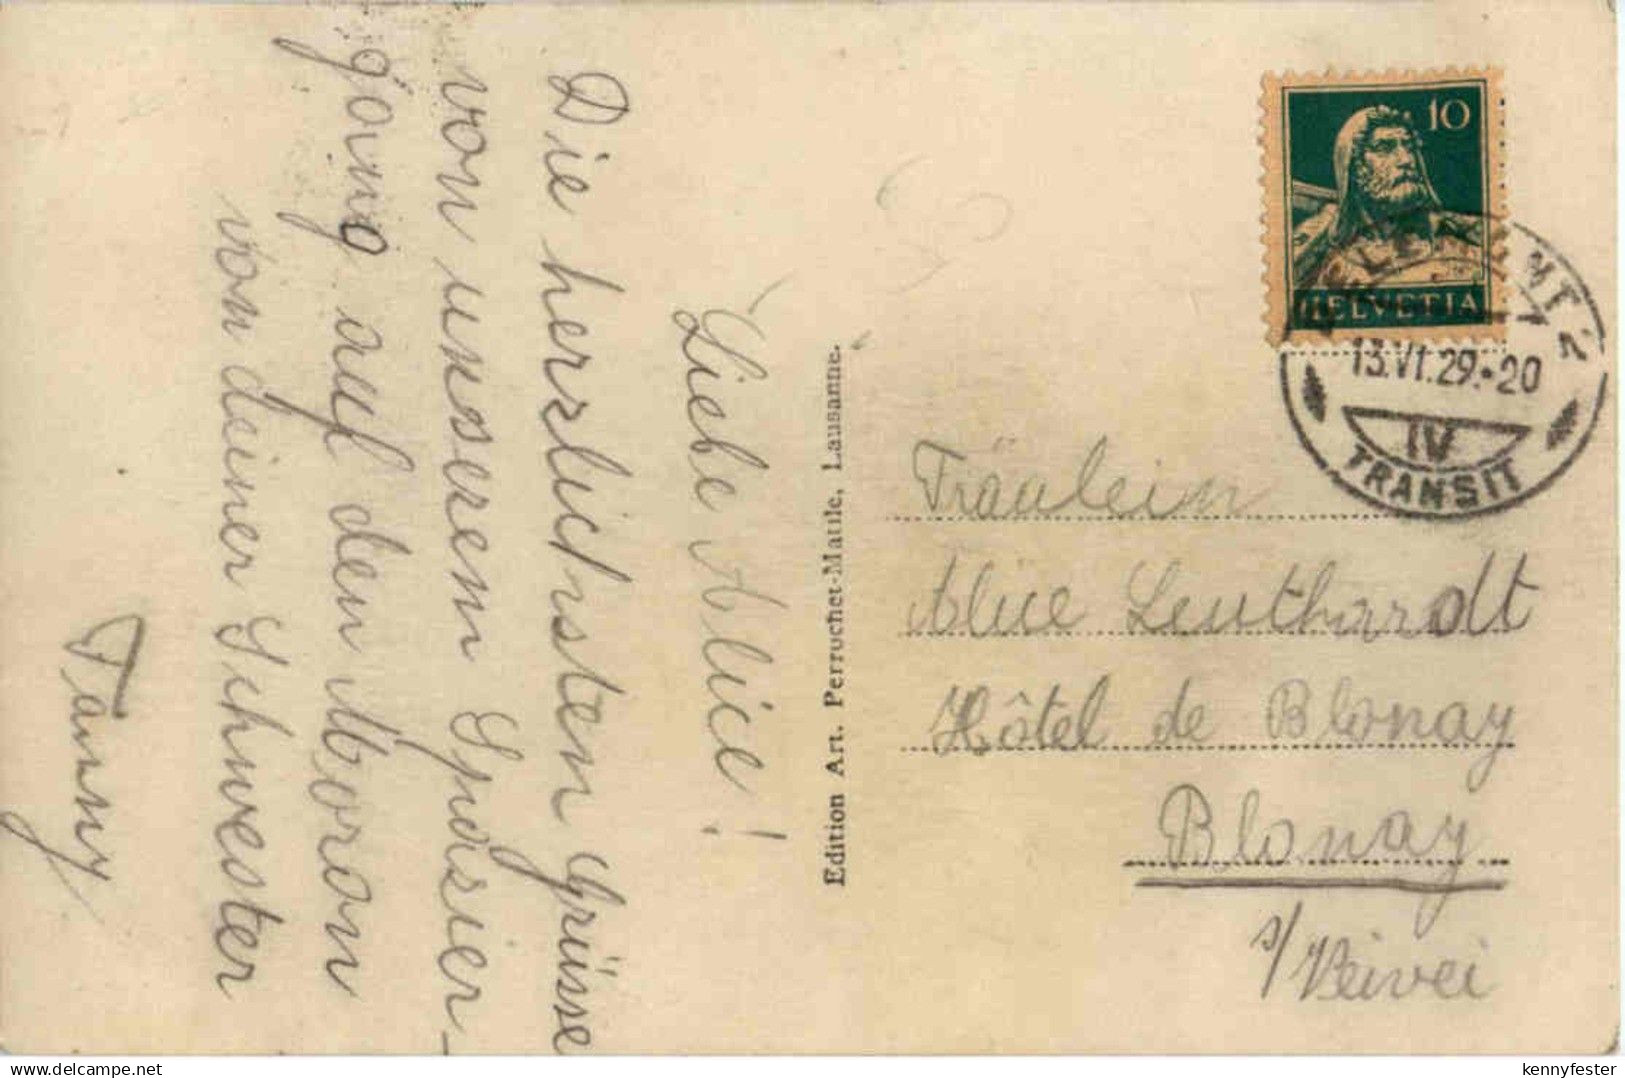 Liebe Alice!
Die herzlichsten Grüsse
von unserem Spazier-
gang auf den Moron
von deiner Schwester
Fanny
Edition Art. Perrochet-Matile, Lausanne.
10
HELVETIA
13.VI.29.-20
IV
TRANSIT
Fräulein
Alice Leuthardt
Hôtel de Blonay
Blonay
s/Veivei
hip.com
kennyfester